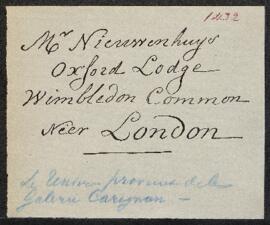 1432
Mr Nieuwenhuys
Oxford Lodge
Wimbledon Common
Neer London
Galerie Carignan —